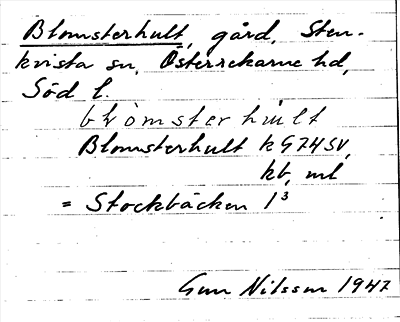 Blomsterhult, gård, Sten-
kvista sn, Österrekarne hd,
Söd l.
blòmsterhùlt
Blomsterhult kG74SV,
kb, ml
= Stockbäcken 1³
Gun Nilsson 1947